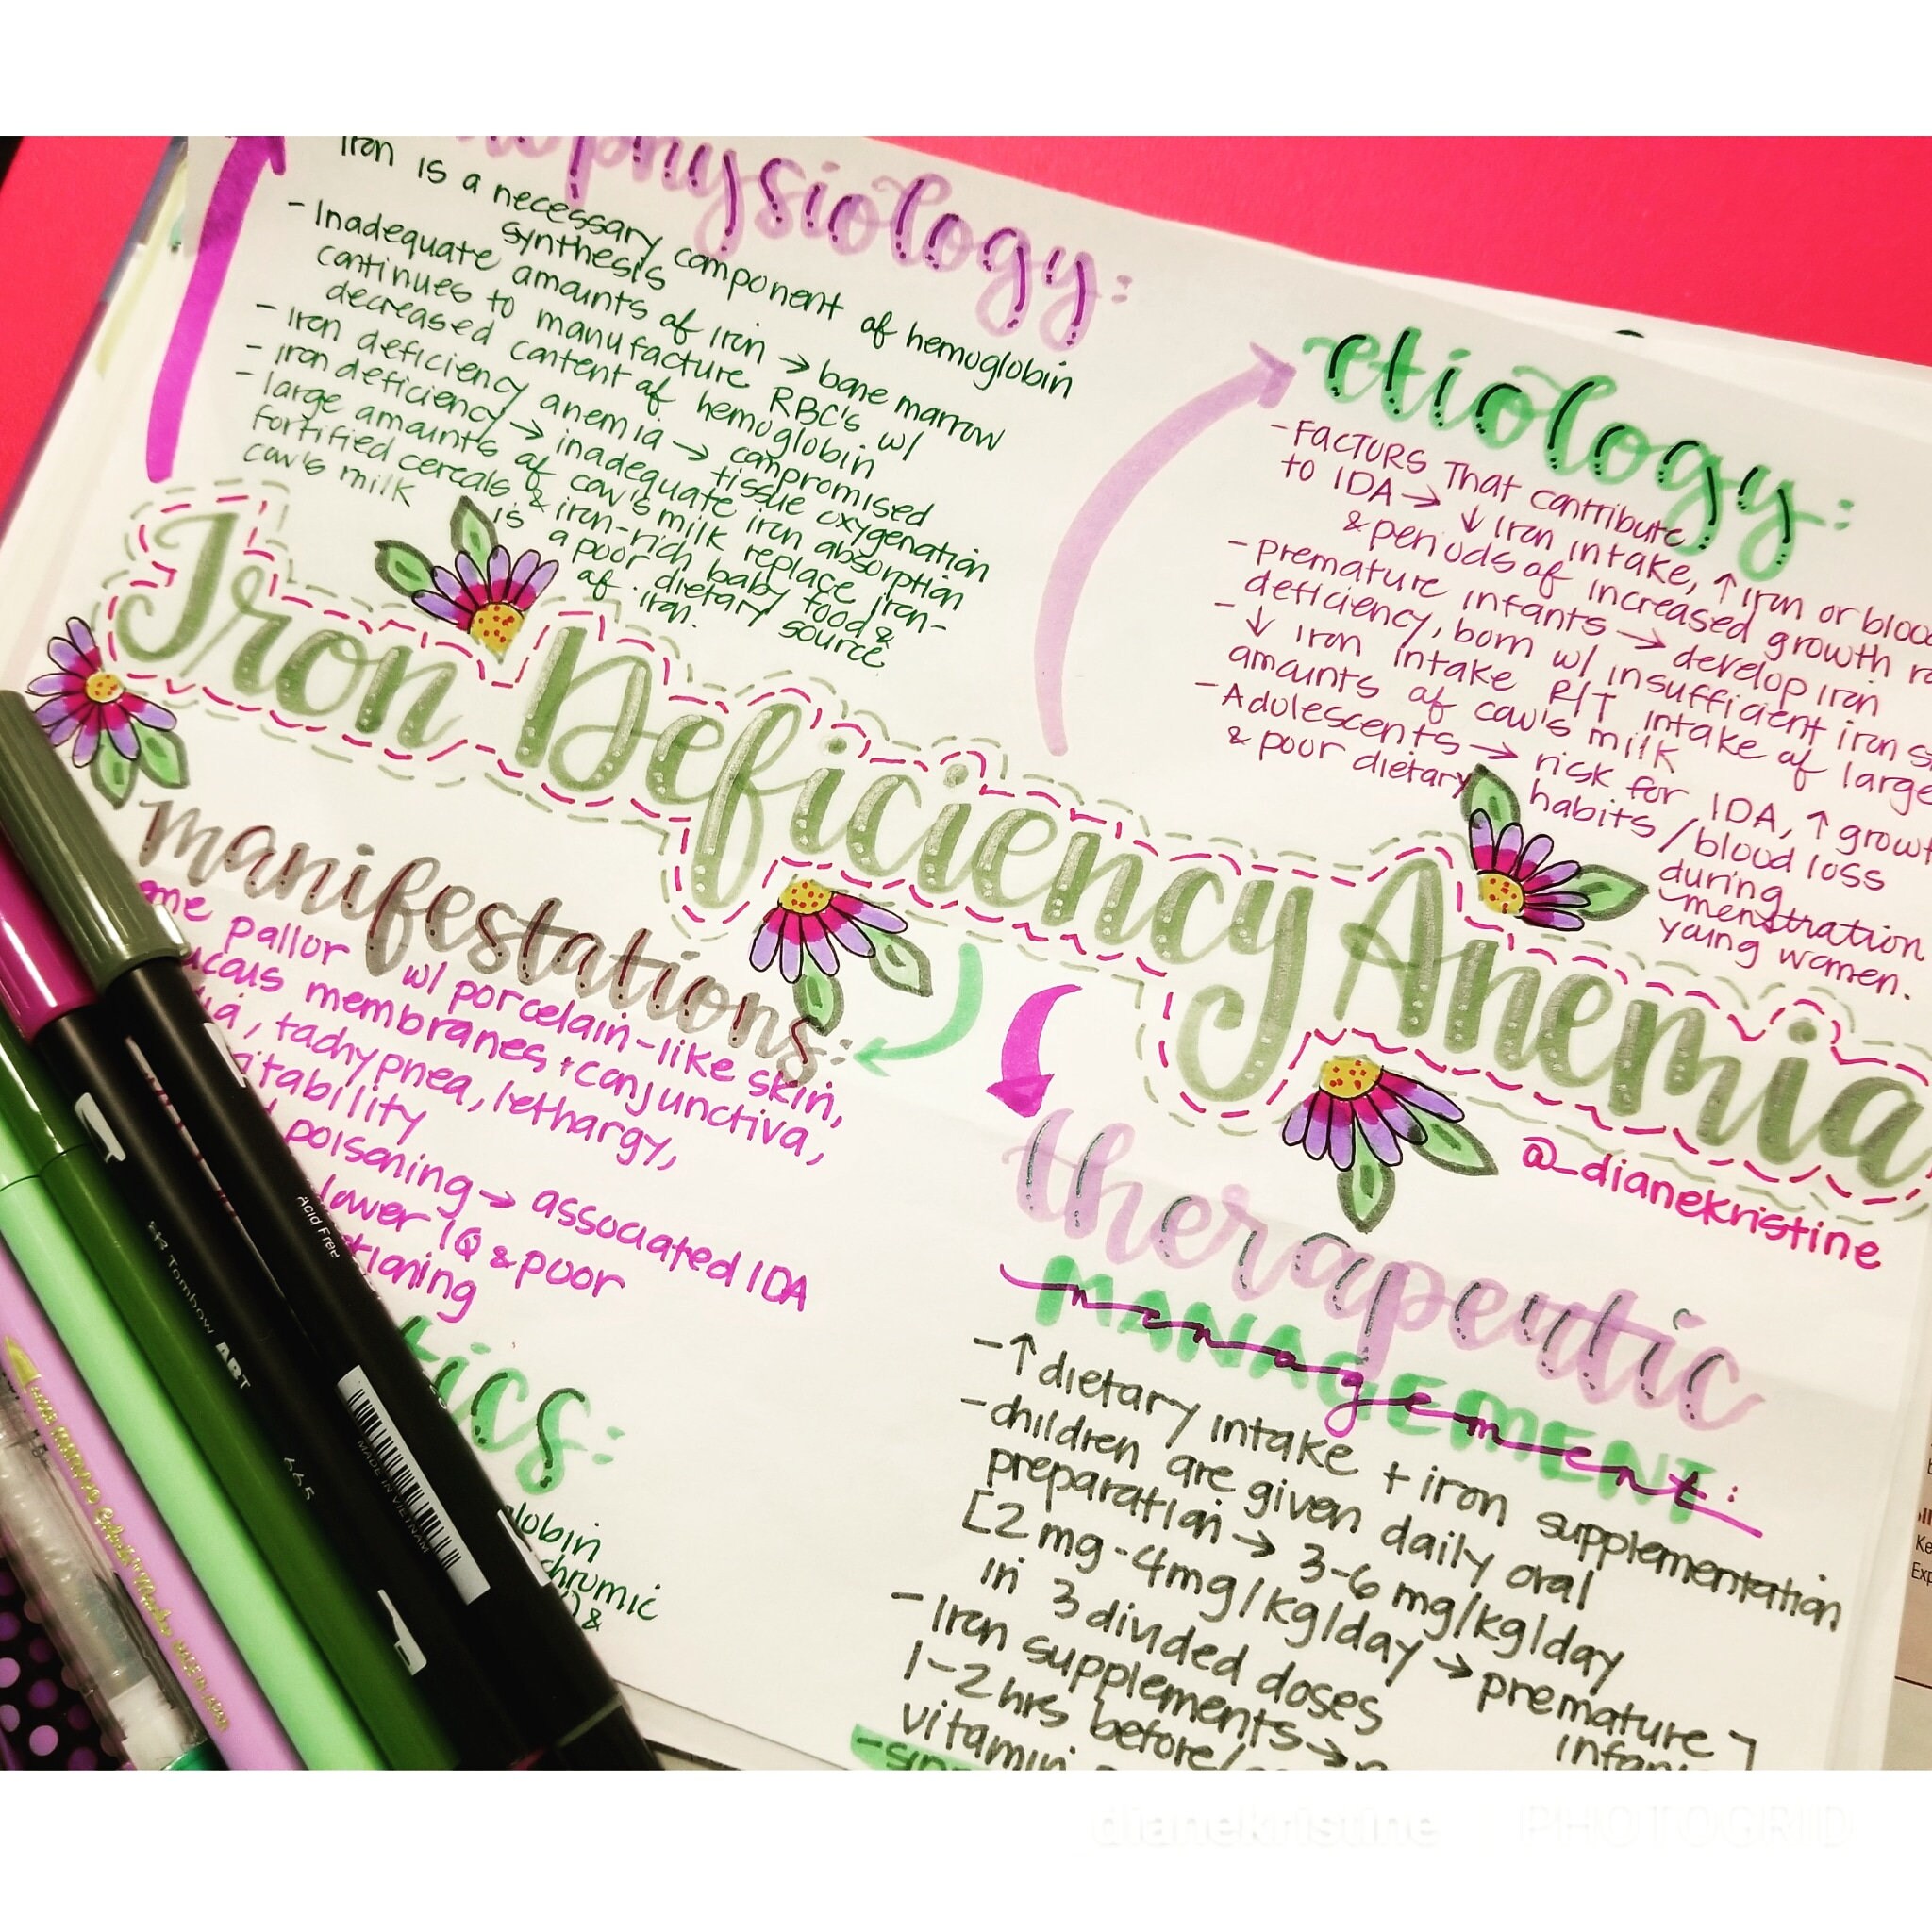 physiology:
Iron is a necessary component of hemoglobin
synthesis
- Inadequate amounts of iron → bone marrow
continues to manufacture RBC's w/
decreased content of hemoglobin
- Iron deficiency anemia → compromised
tissue oxygenation
- iron deficiency → inadequate iron absorption
- large amounts of cow's milk replace iron-
fortified cereals & iron-rich baby food &
cow's milk is a poor dietary source
of iron.
etiology:
- FACTORS That contribute
to IDA → ↓ iron intake, ↑ iron or blood
& periods of increased growth
- premature infants → develop iron
deficiency, born w/ insufficient iron
- ↓ iron intake R/T intake of large
amounts of cow's milk
- Adolescents → risk for IDA, ↑
& poor dietary habits / blood loss
during
menstration
young women.
Iron Deficiency Anemia
@_dianekristine
manifestations:
pallor w/ porcelain-like skin,
membranes + conjunctiva,
tachypnea, lethargy,
poisoning → associated IDA
lower IQ & poor
therapeutic
MANAGEMENT:
management:
- ↑ dietary intake + iron supplementation
- children are given daily oral
preparation → 3-6 mg/kg/day
[2 mg - 4mg/kg/day → premature ]
in 3 divided doses
- Iron supplements →
1-2 hrs before/
vitamin
Acid Free
Tombow ABT
MADE IN VIETNAM
dianekristine
PHOTOGRID